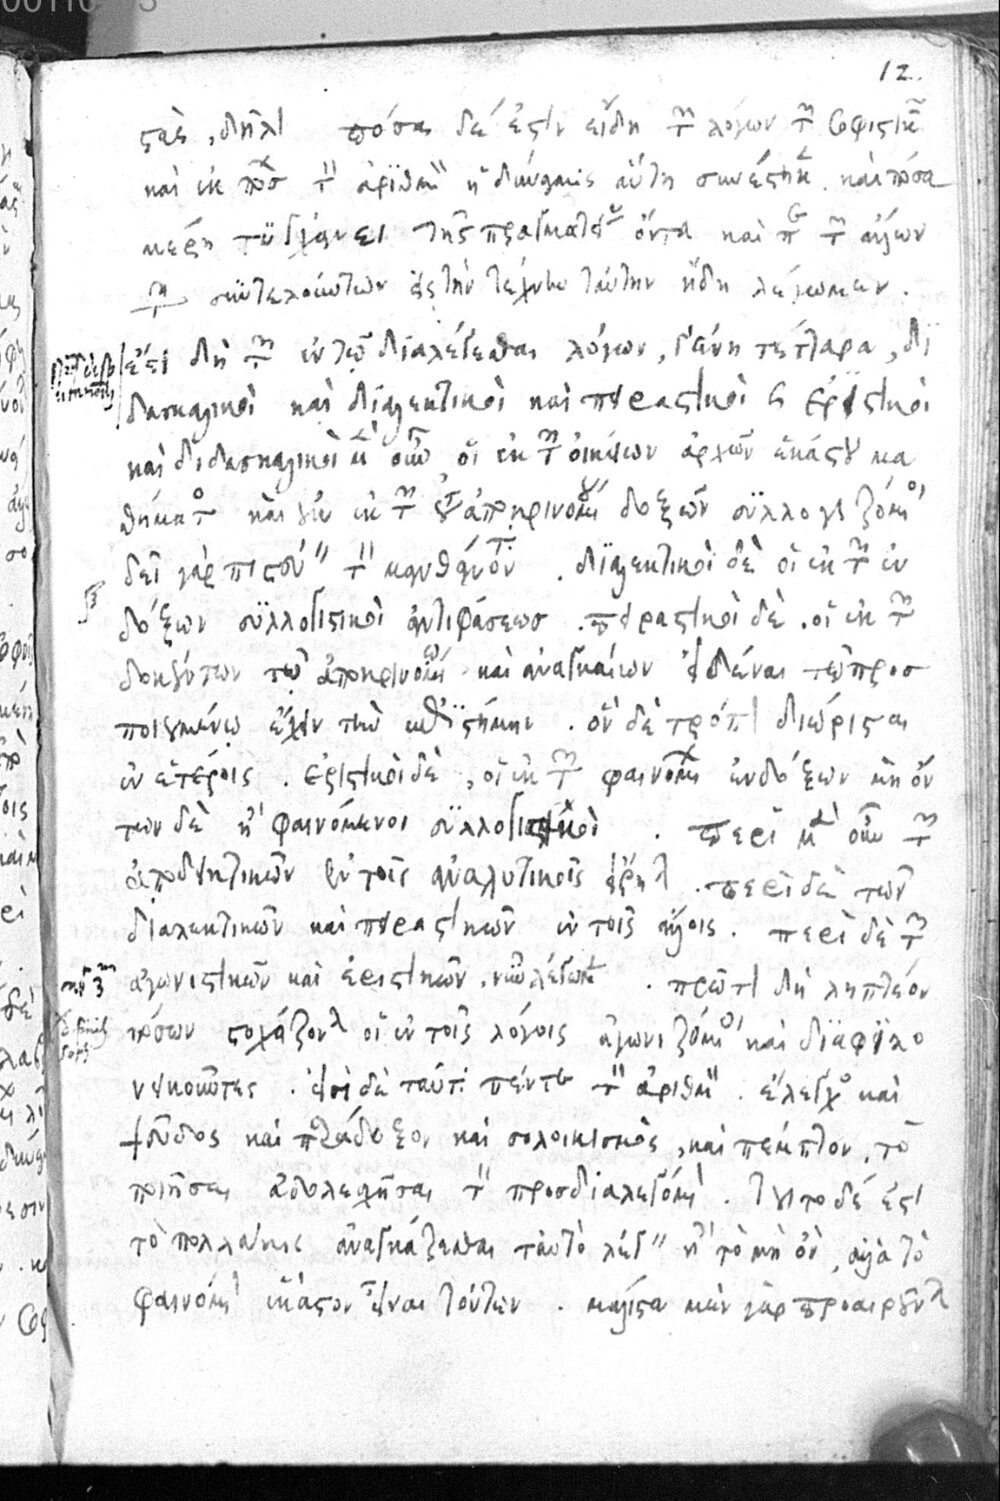 12.
στὰς, δῆλον πόσα δέ ἐστιν εἴδη τῶν λόγων τῶν σοφιστικῶν
καὶ ἐκ πόσων τὸν ἀριθμὸν ἡ δύναμις αὕτη συνέστηκε καὶ πόσα
μέρη τυγχάνει τῆς πραγματείας ὄντα καὶ περὶ τῶν ἄλλων
τῶν συντελούντων εἰς τὴν τέχνην ταύτην ἤδη λέγωμεν.
ἔστι δὴ τῶν ἐν τῷ διαλέγεσθαι λόγων, γένη τέτταρα, δι
δασκαλικοὶ καὶ διαλεκτικοὶ καὶ πειραστικοὶ καὶ ἐριστικοὶ
καὶ διδασκαλικοὶ μὲν οὖν οἱ ἐκ τῶν οἰκείων ἀρχῶν ἑκάστου μα
θήματος καὶ οὐκ ἐκ τῶν τοῦ ἀποκρινομένου δοξῶν συλλογιζόμενοι
δεῖ γὰρ πιστεύειν τὸν μανθάνοντα. διαλεκτικοὶ δὲ οἱ ἐκ τῶν ἐν
δόξων συλλογιστικοὶ ἀντιφάσεως. πειραστικοὶ δὲ. οἱ ἐκ τῶν
δοκούντων τῷ ἀποκρινομένῳ καὶ ἀναγκαίων εἰδέναι τῷ προσ
ποιουμένῳ ἔχειν τὴν ἐπιστήμην. ὃν δὲ τρόπον διώρισται
ἐν ἑτέροις. ἐριστικοὶ δὲ, οἱ ἐκ τῶν φαινομένων ἐνδόξων μὴ ὄν
των δὲ ἢ φαινόμενοι συλλογιστικοὶ. περὶ μὲν οὖν τῶν
ἀποδεικτικῶν ἐν τοῖς ἀναλυτικοῖς εἴρηται. περὶ δὲ τῶν
διαλεκτικῶν καὶ πειραστικῶν ἐν τοῖς ἄλλοις. περὶ δὲ τῶν
ἀγωνιστικῶν καὶ ἐριστικῶν. νῦν λέγωμεν. πρῶτον δὴ ληπτέον
πόσων στοχάζονται οἱ ἐν τοῖς λόγοις ἀγωνιζόμενοι καὶ διαφιλο
νεικοῦντες. εἰσὶ δὲ ταῦτα πέντε τὸν ἀριθμὸν. ἔλεγχος καὶ
ψεῦδος καὶ παράδοξον καὶ σολοικισμὸς, καὶ πέμπτον, τὸ
ποιῆσαι ἀδολεσχῆσαι τὸν προσδιαλεγόμενον. τοῦτο δέ ἐστι
τὸ πολλάκις ἀναγκάζεσθαι ταὐτὸ λέγειν ἢ τὸ μὴ ὂν, ἀλλὰ τὸ
φαινόμενον ἕκαστον εἶναι τούτων. μάλιστα μὲν γὰρ προαιροῦνται